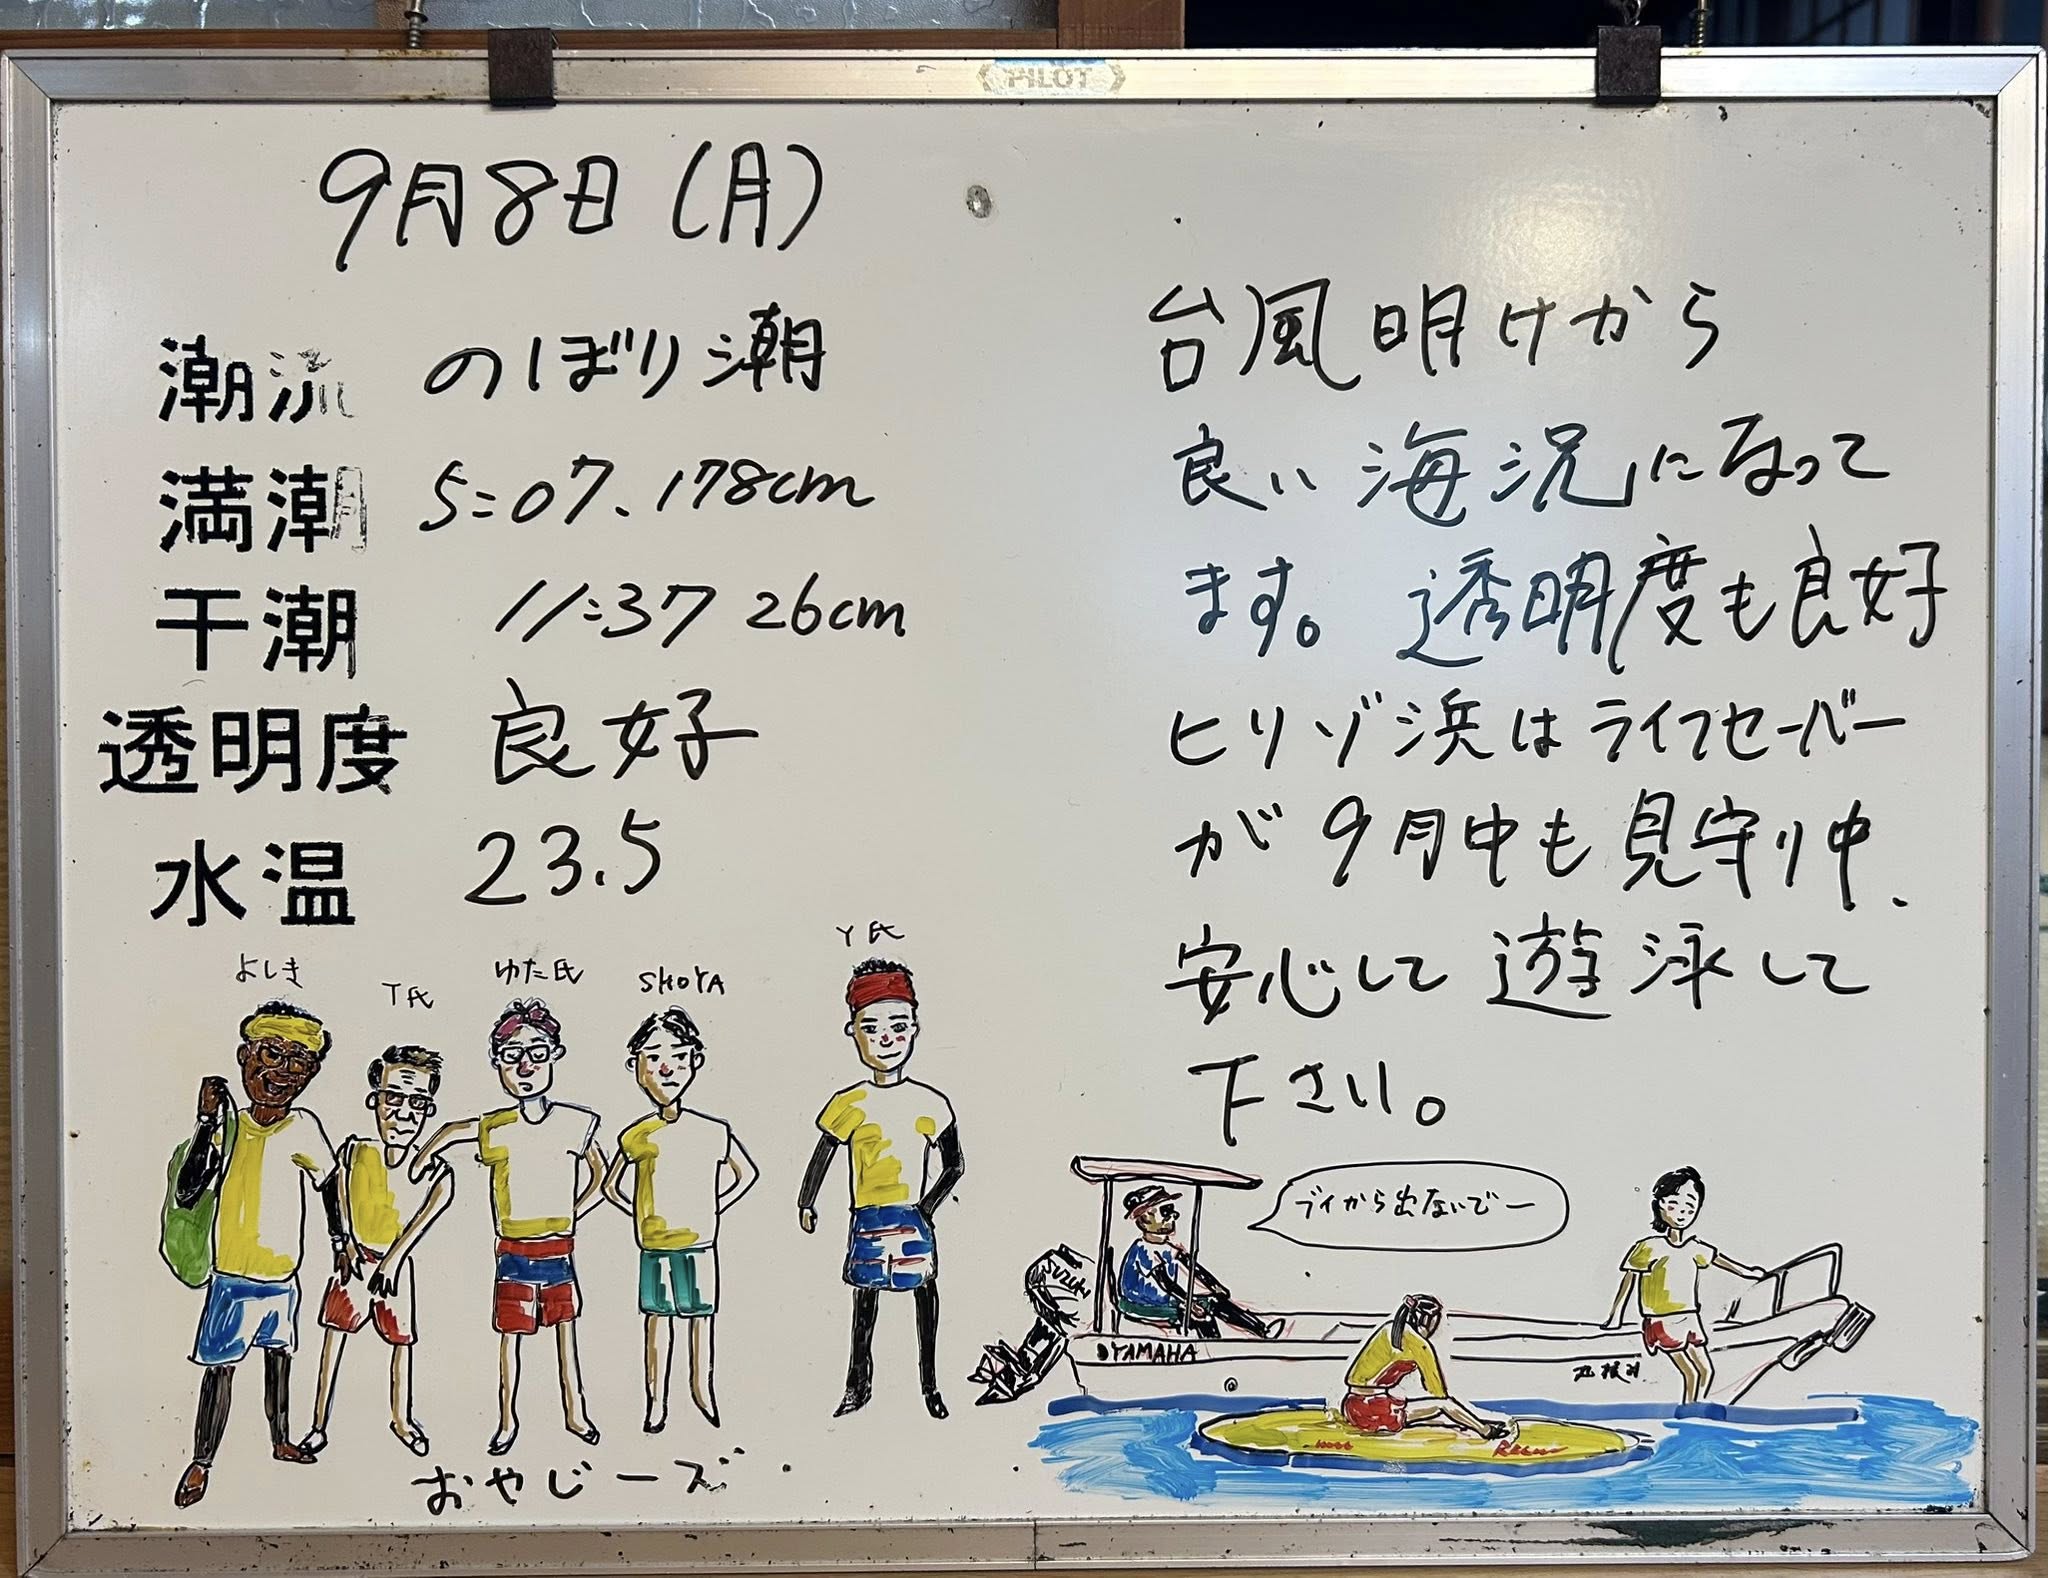 PILOT
9月8日(月)
潮流 のぼり潮
満潮 5:07、178cm
干潮 11:37 26cm
透明度 良好
水温 23.5
台風明けから
良い海況になって
ます。透明度も良好
ヒリゾ浜はライフセーバー
が9月中も見守り中、
安心して遊泳して
下さい。
よしき
T氏
ゆた氏
SHOYA
Y氏
おやじーズ
ブイから出ないでー
SUZUKI
YAMAHA